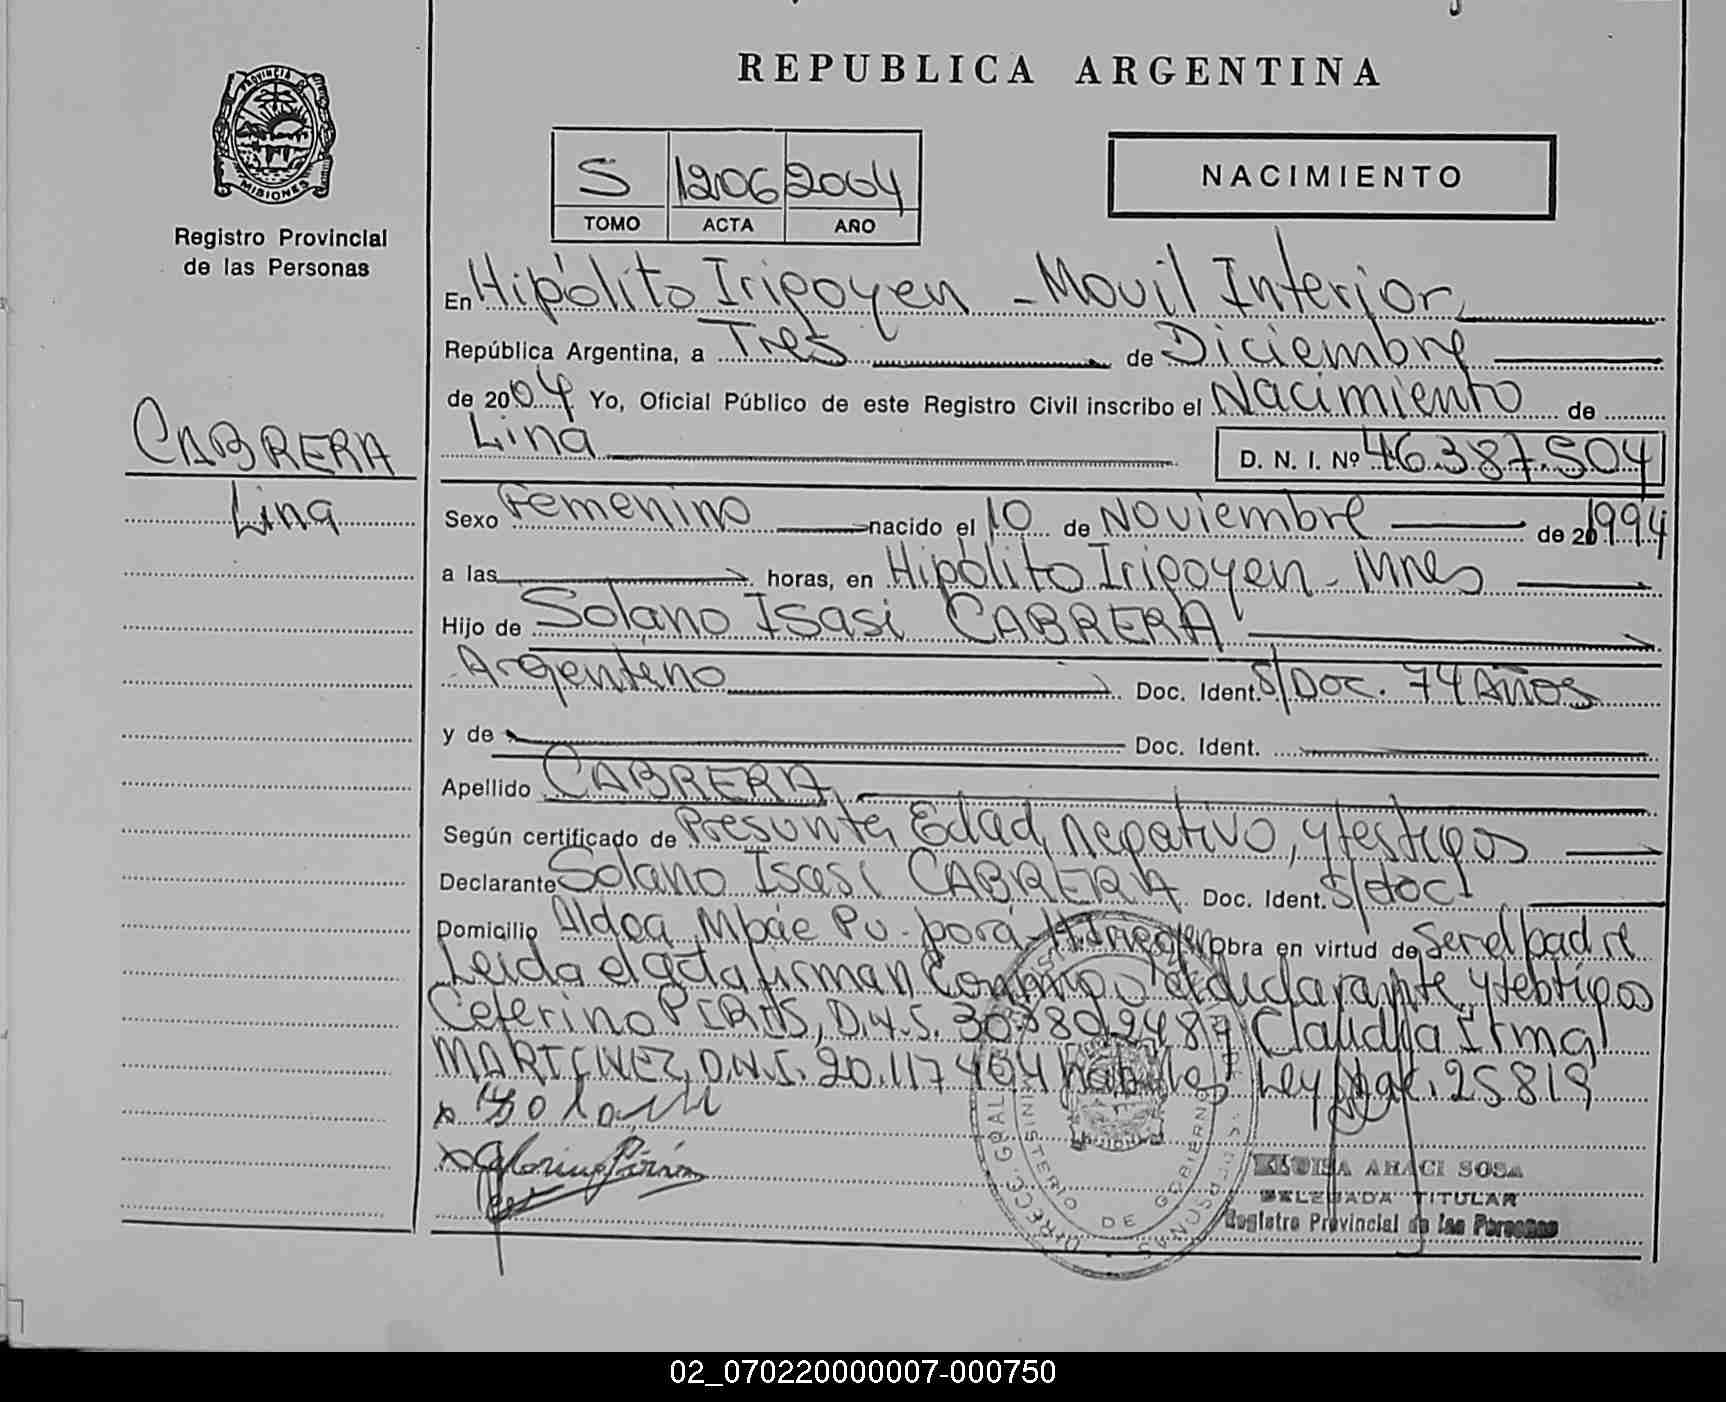 REPUBLICA ARGENTINA
PROVINCIA DE
MISIONES
Registro Provincial
de las Personas
S 1206 2004
TOMO ACTA AÑO
NACIMIENTO
En Hipólito Iripoyen - Movil Interior,
República Argentina, a Tres de Diciembre
de 2004 Yo, Oficial Público de este Registro Civil inscribo el Nacimiento de
CABRERA
Lina
Lina D. N. I. Nº 46.387.504
Sexo Femenino nacido el 10 de Noviembre de 1994
a las horas, en Hipólito Iripoyen - Mnes
Hijo de Solano Isasi CABRERA
Argentino Doc. Ident. S/Doc. 74 Años
y de Doc. Ident.
Apellido CABRERA
Según certificado de Presunta Edad, negativo, y testigos
Declarante Solano Isasi CABRERA Doc. Ident. S/doc
Domicilio Aldea Mbáe Pu-porá Obra en virtud de Ser el padre
Leida el acta firman Conmigo el declarante y testigos
Ceferino D.N.I. Claudia Irma
MARTINEZ, D.N.I. 20.117.464 habiles Ley 25819
ARACI SOSA
DELEGADA TITULAR
Registro Provincial de las Personas
MINISTERIO DE GOBIERNO
02_070220000007-000750